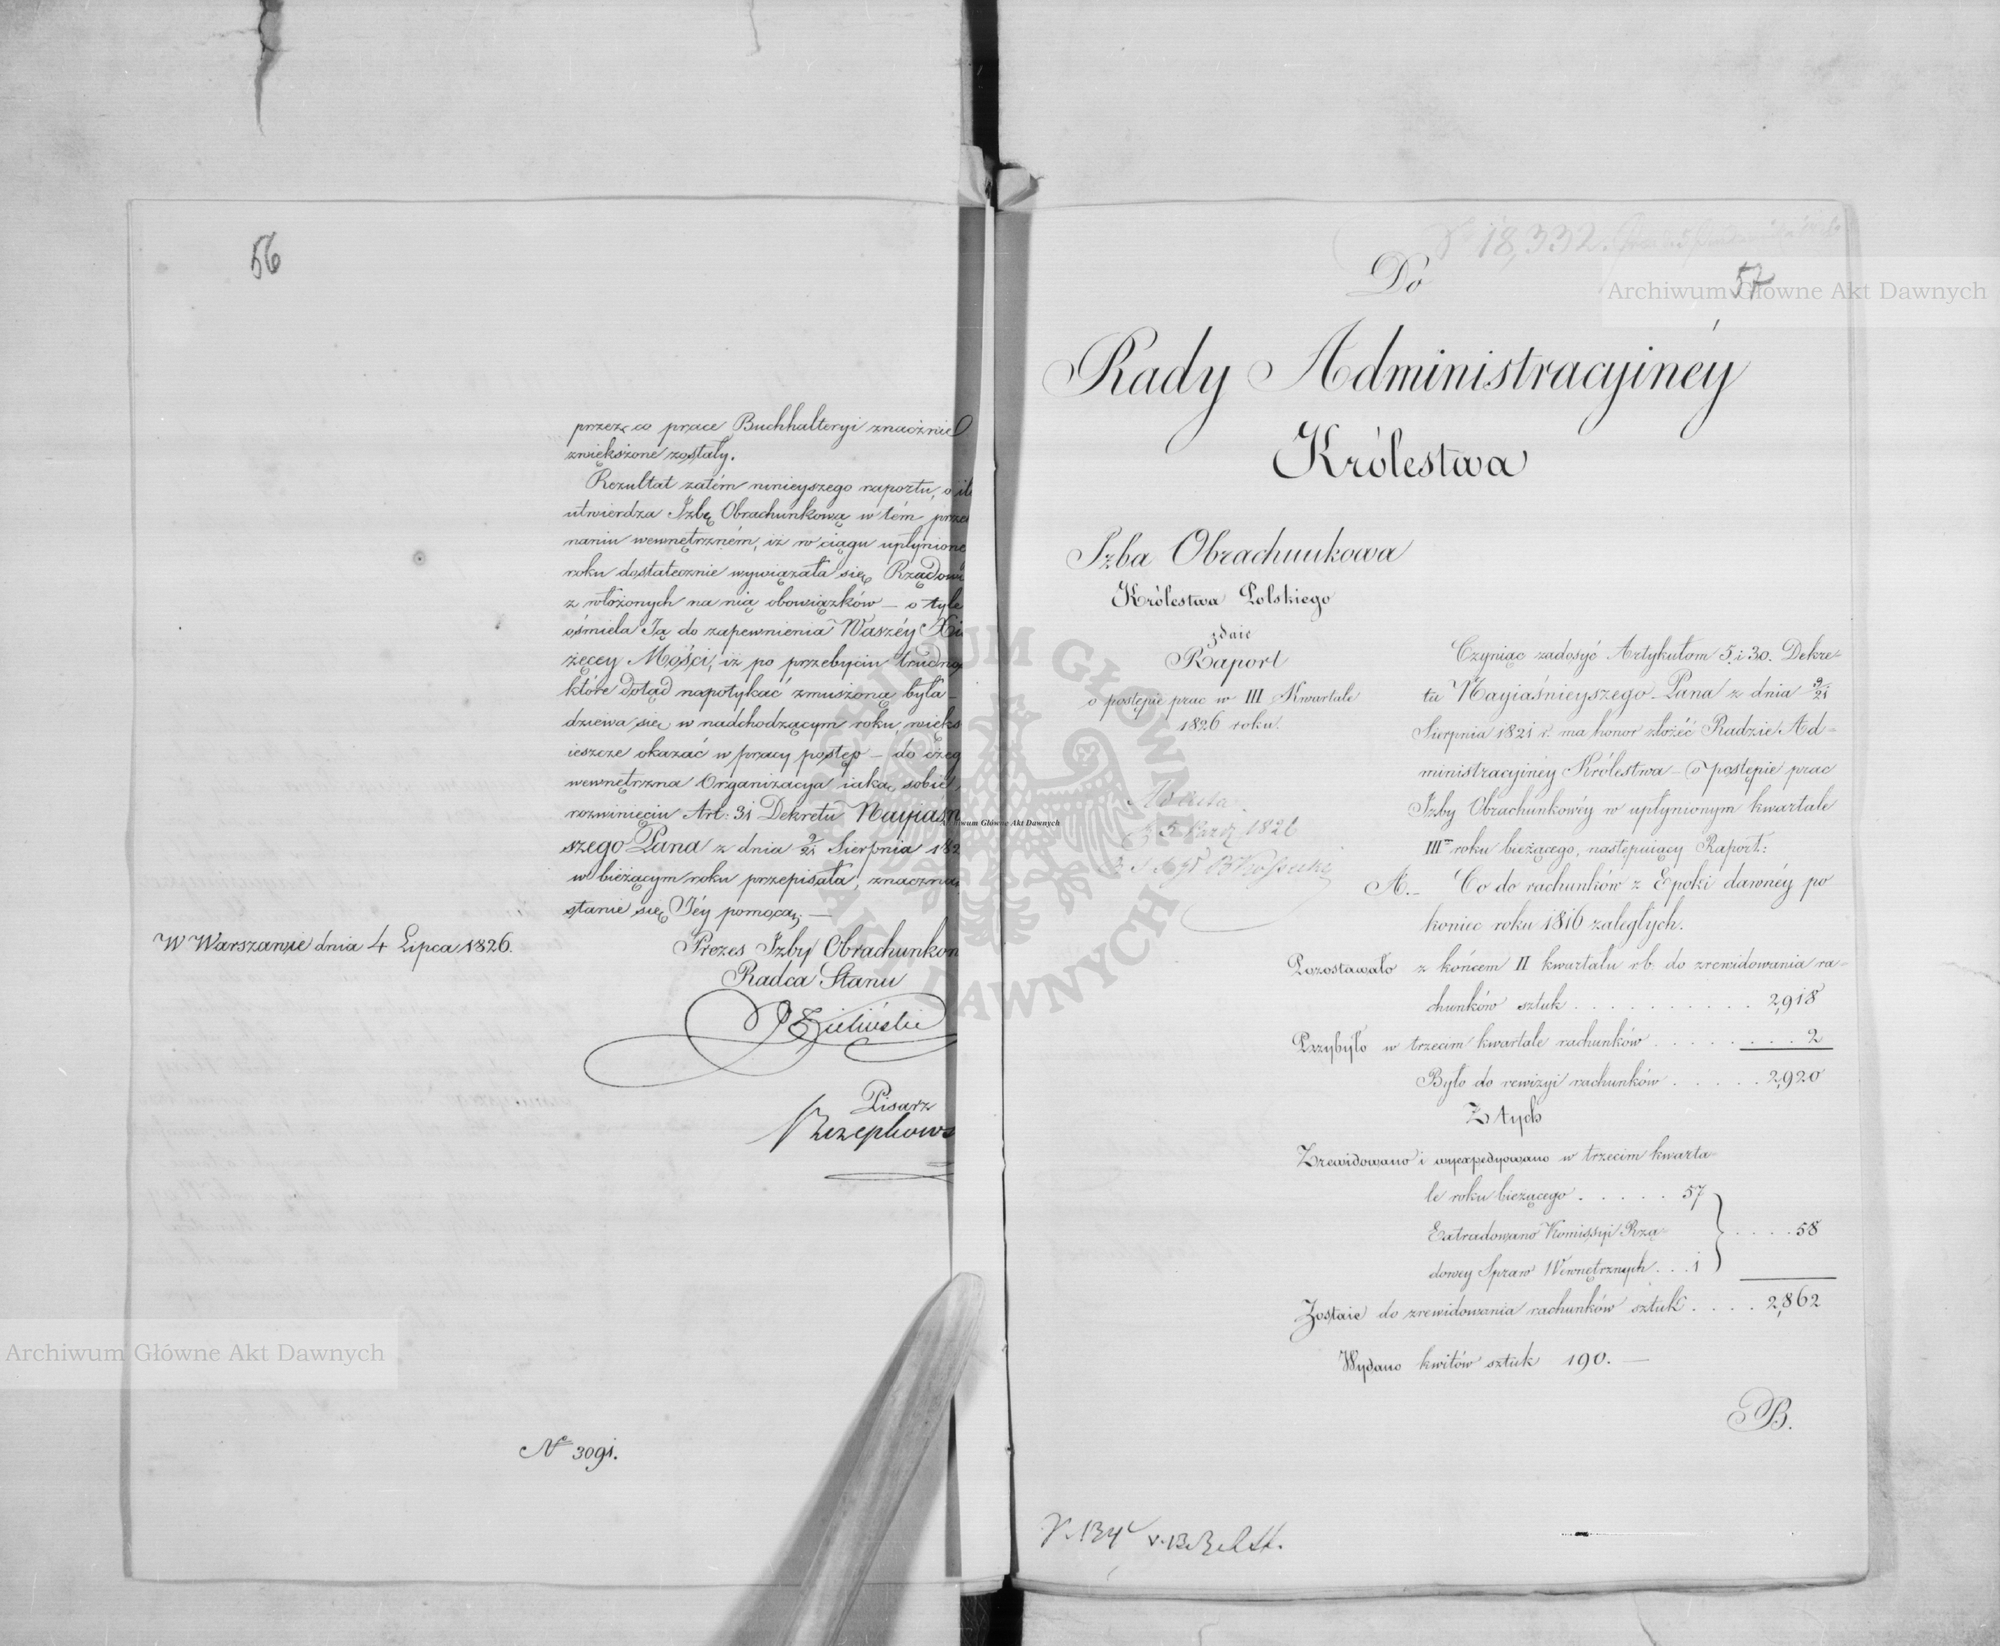 56
przez co prace Buchhalteryi znacznie
zwiększone zostały.
Rezultat zatém ninieyszego raportu, o il
utwierdza Izbę Obrachunkową w tém prze
naniu wewnętrzném, iż w ciągu upłynione
roku dostatecznie wywiązała się Rządowi
z włożonych na nią obowiązków – o tyle
ośmiela Ją do zapewnienia Waszéy Xi
żęcey Mości, iż po przebyciu trudno
które dotąd napotykać zmuszoną była –
dziewa się w nadchodzącym roku, więks
ieszcze okazać w pracy postęp – do czeg
wewnętrzna Organizacya iaką sobie
rozwinięciu Art: 31 Dekretu Nayiaśn
szego Pana z dnia 9/21 Sierpnia 182
w bieżącym roku przepisała, znaczną
stanie się Jéy pomocą. —
W Warszawie dnia 4 Lipca 1826.
Prezes Izby Obrachunkow
Radca Stanu
Zieliński
Pisarz
Rzzepkows
№ 3091.
№ 18,332.
57
Do
Rady Administracyinéy
Królestwa
Izba Obrachunkowa
Królestwa Polskiego
zdaie
Raport
o postępie prac w III Kwartale
1826 roku.
Czyniąc zadosyć Artykułom 5. i 30. Dekre-
tu Nayiaśnieyszego Pana z dnia 9/21
Sierpnia 1821 r. ma honor złożéć Radzie Ad-
ministracyinéy Królestwa – o postępie prac
Izby Obrachunkowéy w upłynionym kwartale
III roku bieżącego, następuiący Raport:
A. – Co do rachunków z Epoki dawnéy po
koniec roku 1816 zaległych.
Pozostawało z końcem II kwartału r.b. do zrewidowania ra-
chunków sztuk . . . . . . . . . . . 2,918
Przybyło w trzecim kwartale rachunków . . . . . . . . 2
Było do rewizyi rachunków . . . . . 2,920
Z tych
Zrewidowano i wyexpedyowano w trzecim kwarta-
le roku bieżącego . . . . . 57
Extradowano Kommissyi Rzą- . . . . 58
dowey Spraw Wewnętrznych . . . 1
Zostaie do zrewidowania rachunków sztuk . . . . 2,862
Wydano kwitów sztuk 190. —
B.
Archiwum Główne Akt Dawnych
Archiwum Główne Akt Dawnych
Archiwum Główne Akt Dawnych
ARCHIWUM GŁÓWNE AKT DAWNYCH